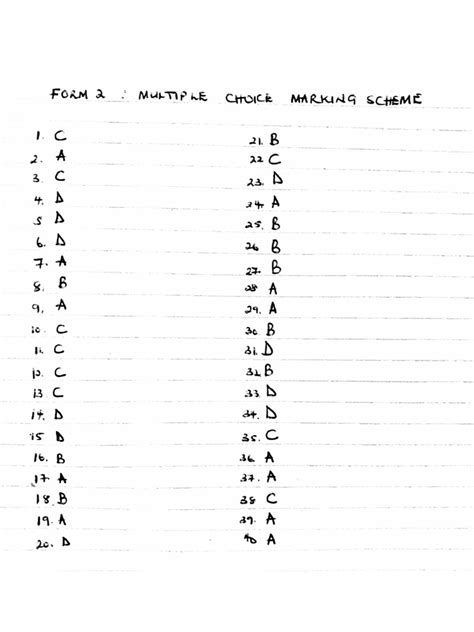 FORM 2 : MULTIPLE CHOICE MARKING SCHEME
1. C
2. A
3. C
4. D
5 D
6. D
7. A
8. B
9. A
10. C
11. C
12. C
13 C
14. D
15 D
16. B
17. A
18. B
19. A
20. D
21. B
22 C
23. D
24. A
25. B
26 B
27. B
28 A
29. A
30 B
31. D
32 B
33 D
34. D
35. C
36 A
37. A
38 C
39. A
40 A